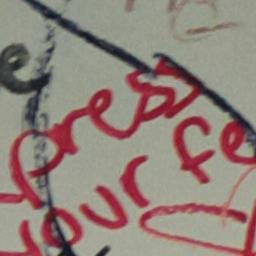 press
your fe